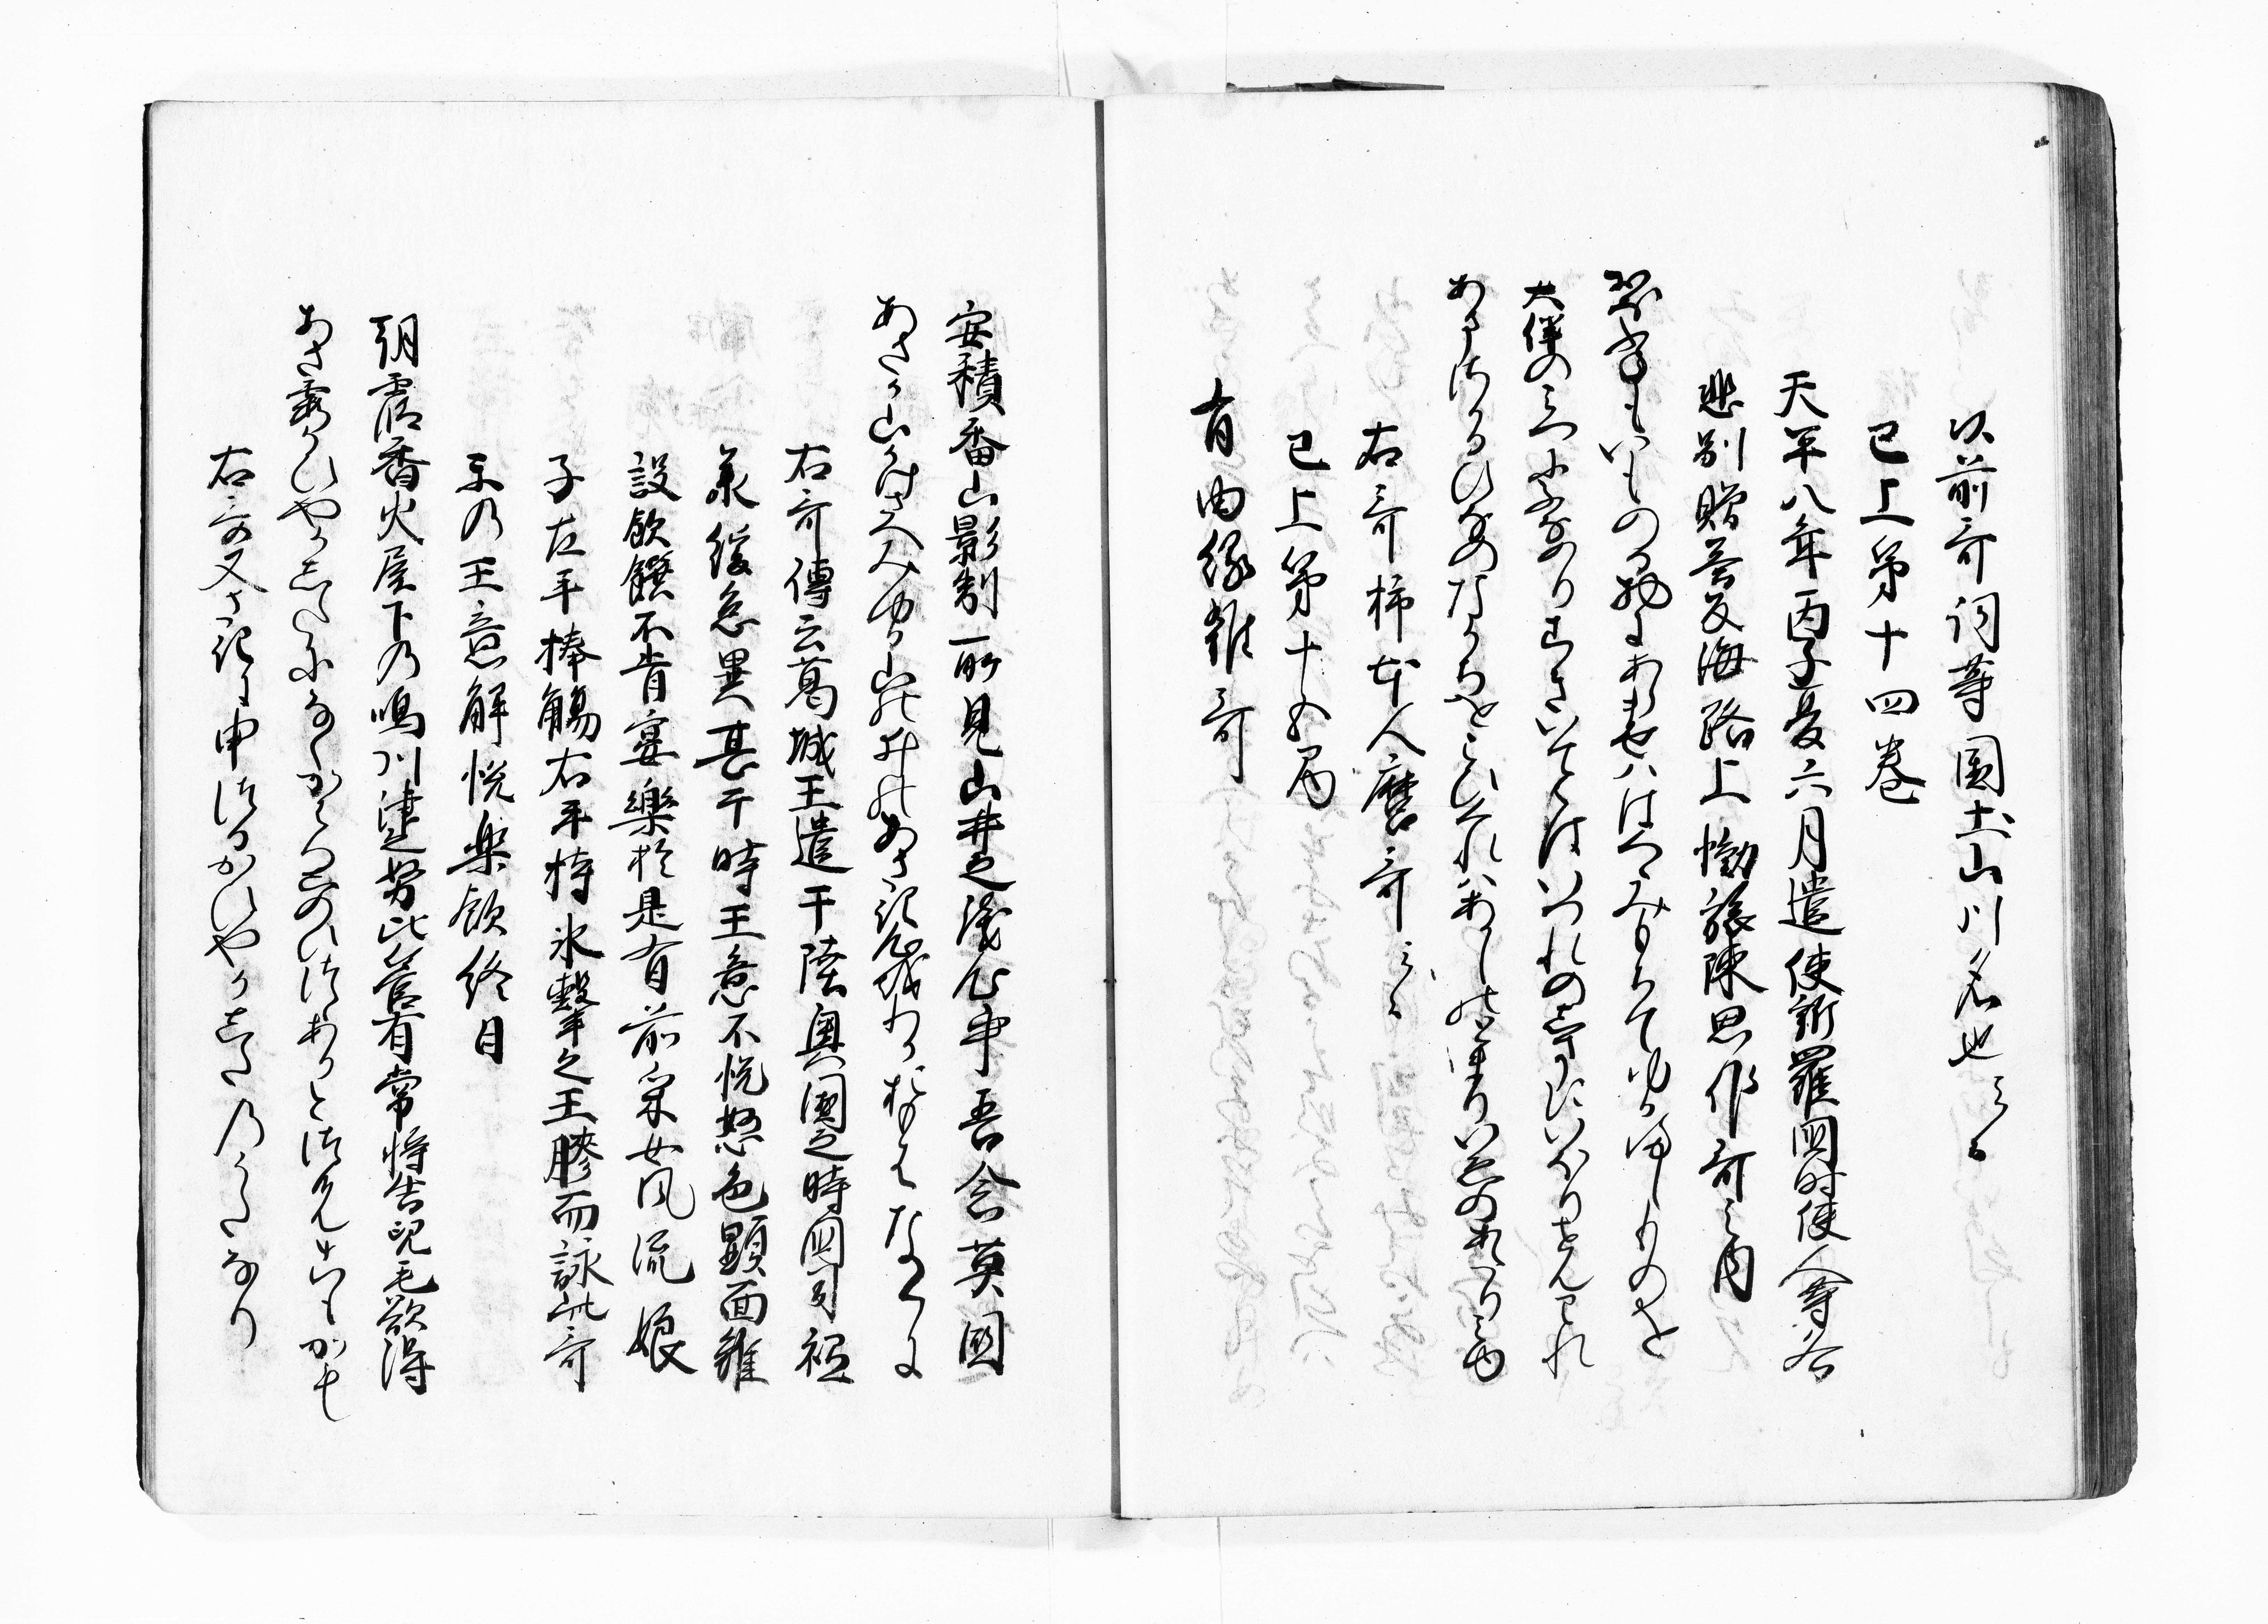 以前哥詞等國土山川名也云々
已上第十四巻
天平八年丙子夏六月遣使新羅國時使人等各
悲別贈荅及海路上慟旅陳思作哥之内
わかいもの
大伴のみつにふなのりこきいてゝはいつれの嶋にいほりせんわれ
あまさかるひなのなかちをこひくれはあかしのとよりいゑのあたりみゆ
右哥柿本人麿哥云々
已上第十五局
有由縁雑哥
安積香山影副所見山井之浅心乎吾念莫國
あさか山かけさへみゆる山の井のあさき心をわかおもはなくに
右哥傳云葛城王遣于陸奥國之時國司祗
承緩怠異甚于時王意不悦怒色顕面雖
設飲饌不肯宴樂於是有前采女風流娘
子左手捧觴右手持水撃之王膝而詠此哥
尓乃王意解悦樂飲終日
朝霞香火屋下乃鳴川津之努比管有常将告児毛欲得
あさ霞かひやかしたになくかはつしのひつゝありとつけんこもかも
右哥又さきに申つるかひやかしたのうたなり